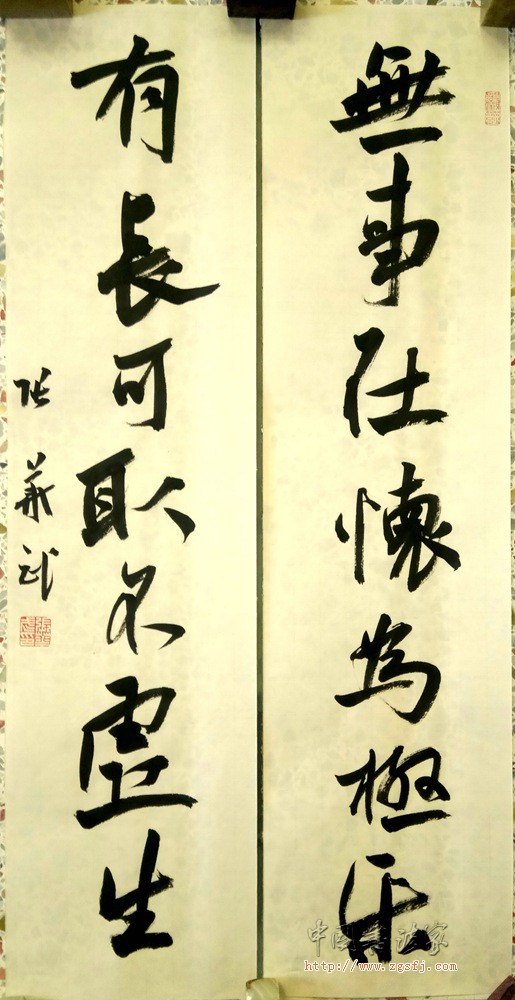 無事在懷為極樂
有長可取不虛生
張義武
中国书法家
http://www.zgsfj.com